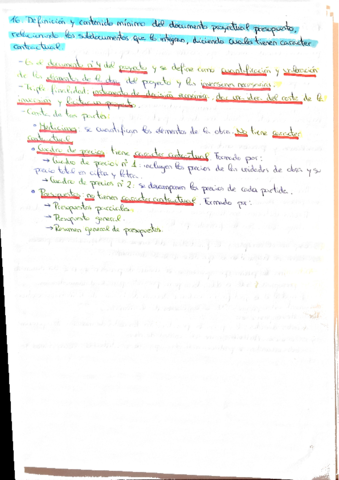 16. Definición y contenido mínimo del documento proyectual presupuesto,
relacionando los subdocumentos que lo integran, diciendo cuales tienen carácter
contractual.
- Es el documento nº4 del proyecto y se define como cuantificación y valoración
de los elementos de la obra del proyecto y las
- finalidad: instrumento de decisión del resto de la
y
- Consta de las partes:
• Mediciones: se cuantifican los elementos de la obra. No tiene carácter
contractual.
• Cuadro de precios tiene carácter contractual. Formado por:
→ Cuadro de precios nº1: incluyen los precios de las unidades de obra y su
precio total en cifra y letra.
→ Cuadro de precios nº2: se descomponen los precios de cada partida.
• Presupuesto no tienen carácter contractual. Formado por:
→ Presupuestos parciales.
→ Presupuesto general.
→ Resumen general de presupuestos.